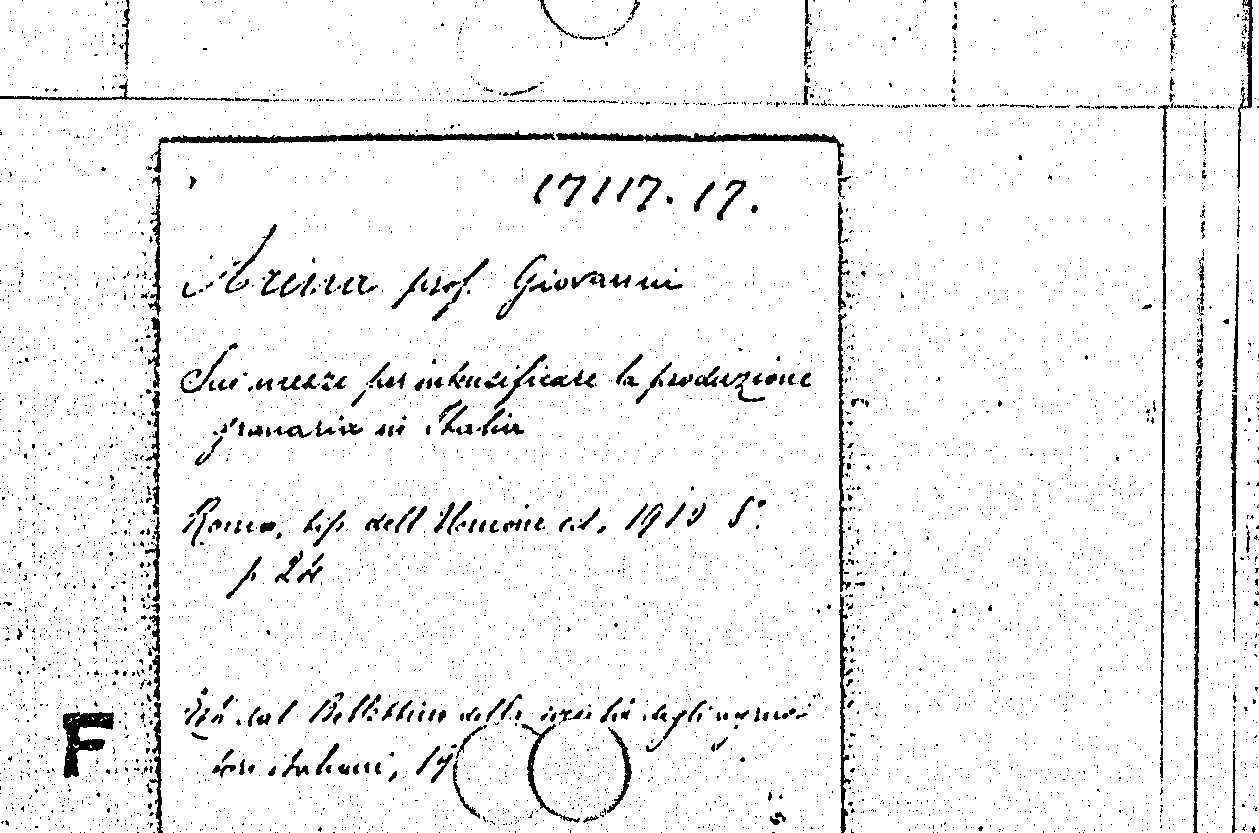 17117.17.
Arena prof. Giovanni
Sui mezzi per intensificare la produzione
granaria in Italia
Roma, tip. dell'Unione ed., 1910 8°
p. 24
Estr. dal Bollettino della società degli agricol-
tori italiani, 19
F